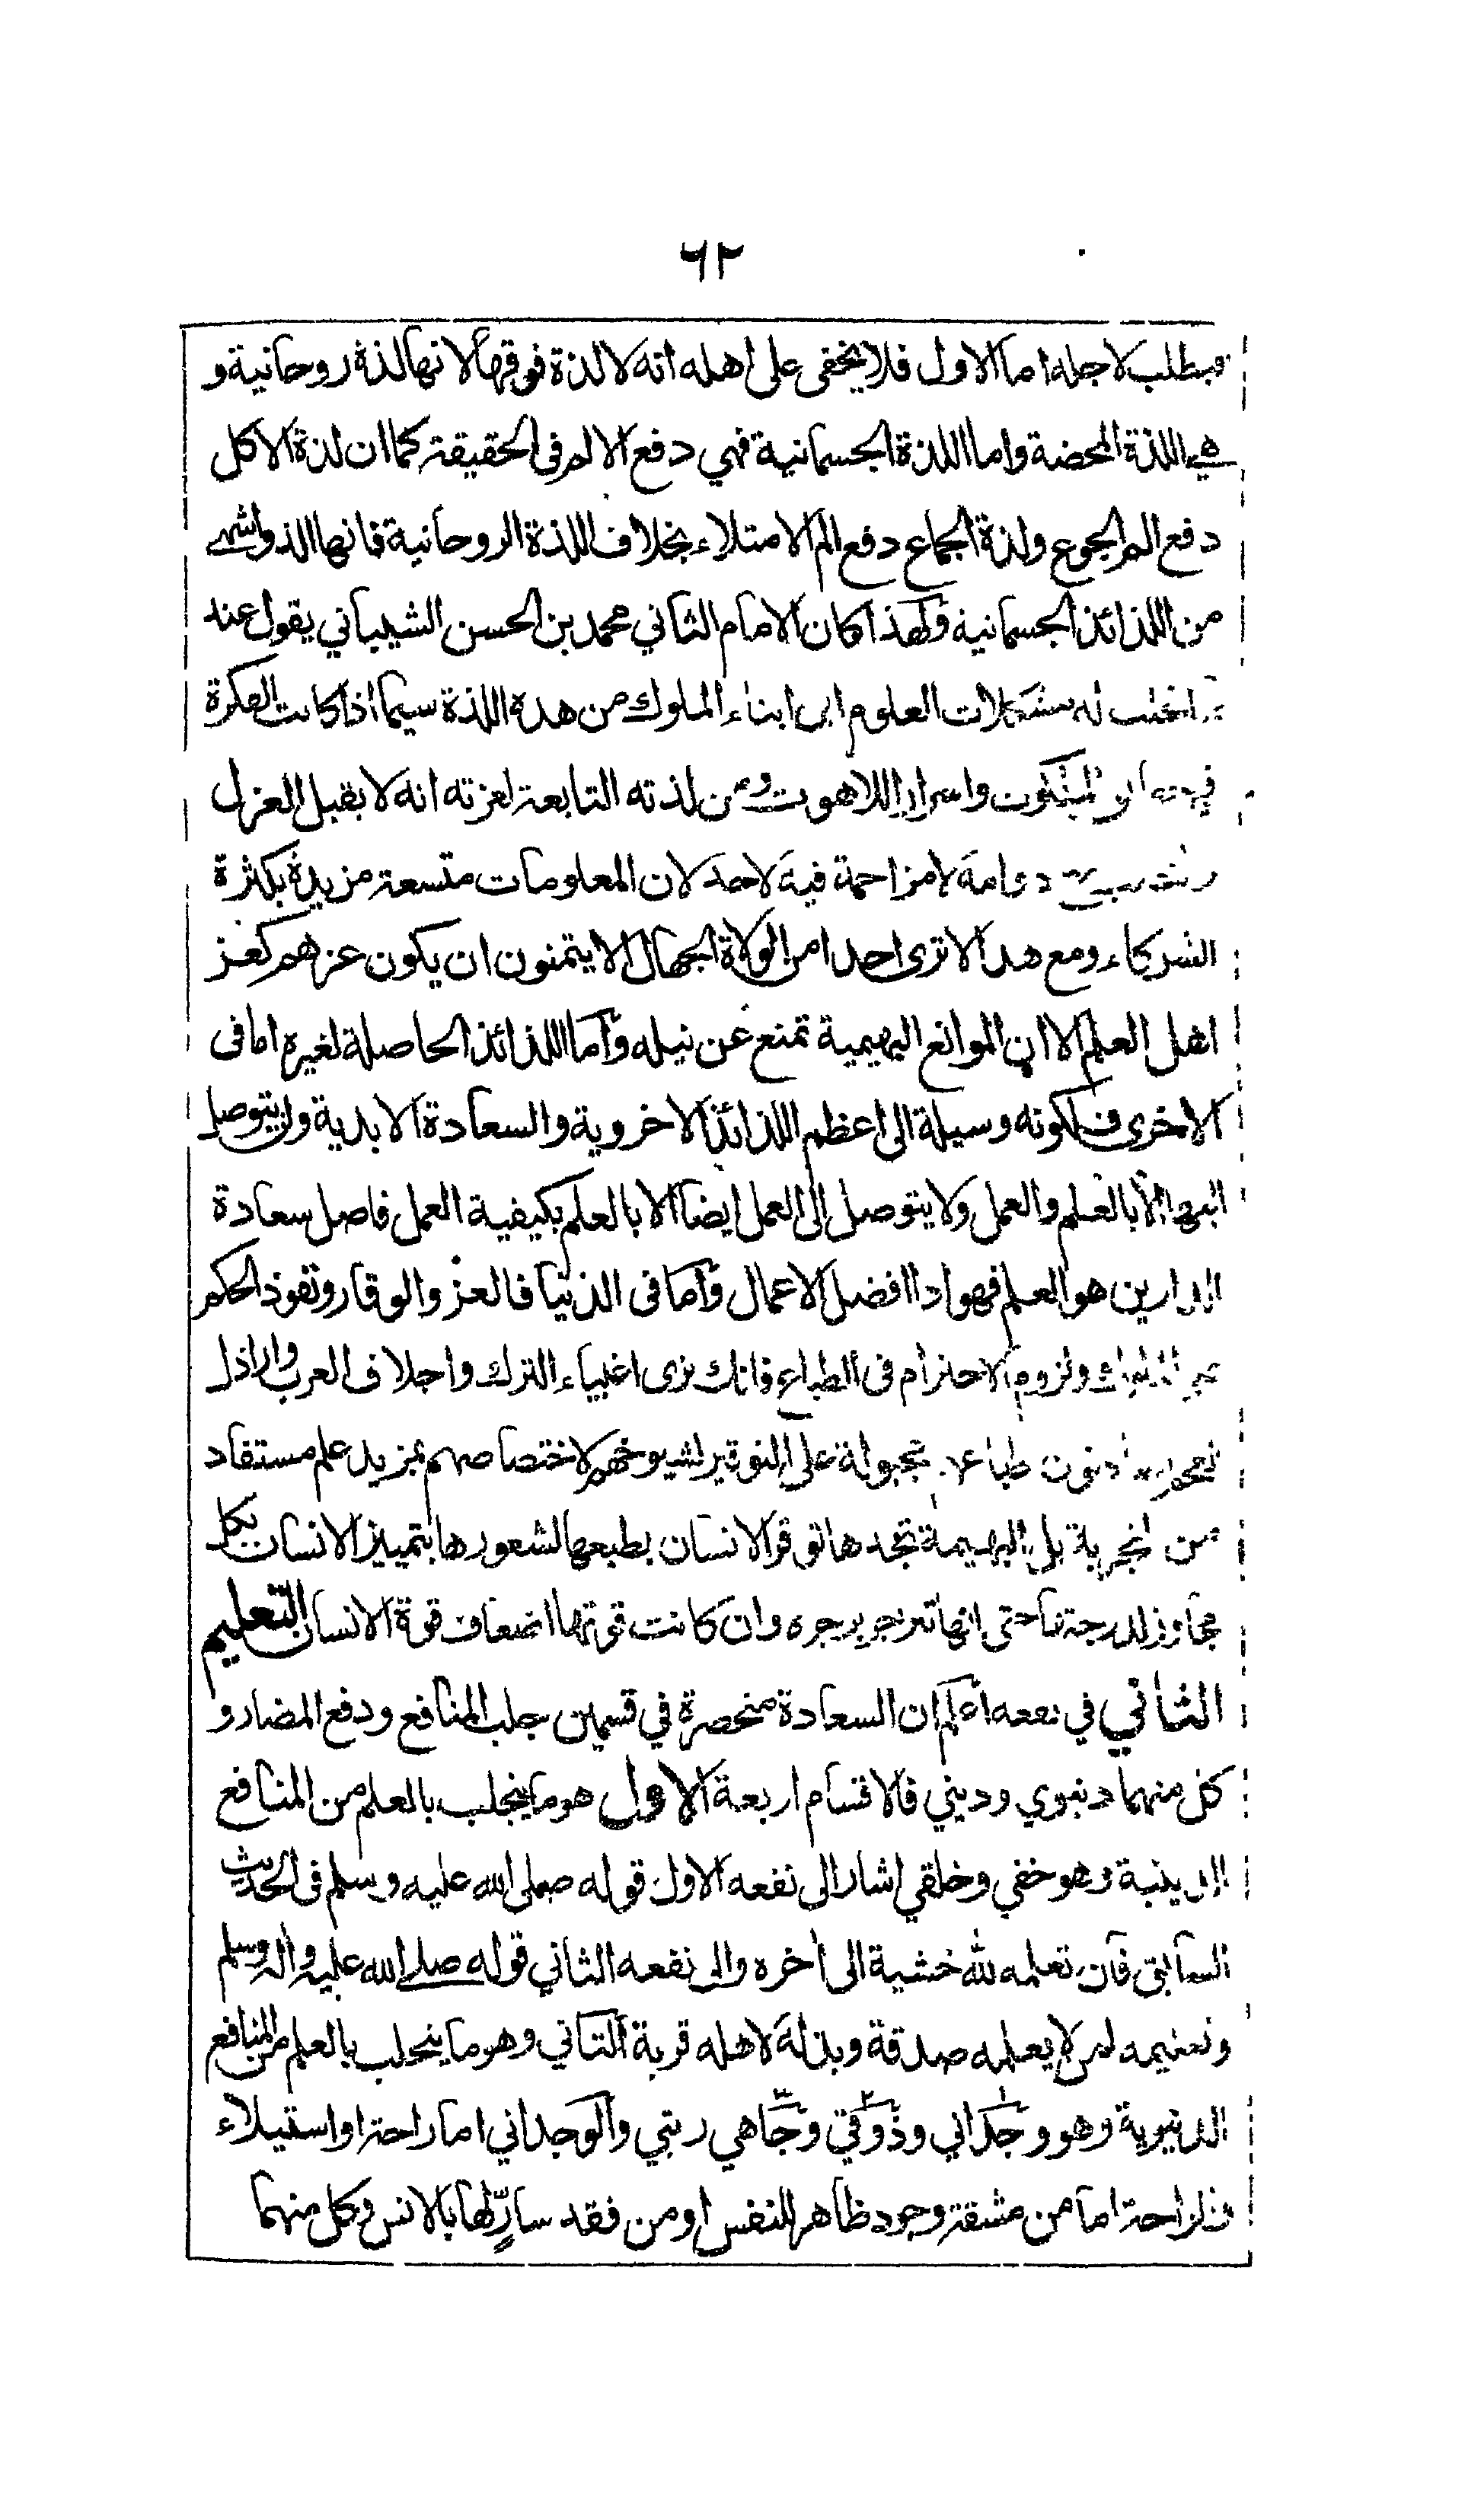 ٦٢
فيطلب لاجله اما الاول فلا يخفى على اهله انه لا لذة فوقها لانها لذة روحانية و
هي اللذة المحضة واما اللذة الجسمانية فهي دفع الالم فى الحقيقة كما ان لذة الاكل
دفع الم الجوع ولذة الجماع دفع الم الامتلاء بخلاف اللذة الروحانية فانها الذ واشهى
من اللذائذ الجسمانية ولهذا كان الامام الثاني محمد بن الحسن الشيباني يقول عند
انحلت له مشكلات العلوم اين ابناء الملوك من هذه اللذة سيما اذا كانت الفكرة
واسرار اللاهوت ومن لذته التابعة لعزته انه لا يقبل العزل
دوامه لا مزاحمة فيه لاحد لان المعلومات متسعة مزيدة بكثرة
الشركاء ومع هذا لا ترى احدا من الولاة الجهال الا يتمنون ان يكون عزهم كعز
اهل العلم الا ان الموانع البهيمية تمنع عن نيله واما اللذائذ الحاصلة لغيره اما فى
الاخرى فلكونه وسيلة الى اعظم اللذائذ الاخروية والسعادة الابدية ولن يتوصل
اليها الا بالعلم والعمل ولا يتوصل الى العمل ايضا الا بالعلم بكيفية العمل فاصل سعادة
الدارين هو العلم فهو اذا افضل الاعمال واما فى الدنيا فالعز والوقار ونفوذ الحكم
على الملوك ولزوم الاحترام فى الطباع فانك ترى اغبياء الترك واجلاف العرب واراذل
العجم يصادفون طباعهم مجبولة على التوقير لشيوخهم لاختصاصهم بمزيد علم مستفاد
من التجربة بل البهيمة تجدها توقر الانسان بطبعها لشعورها بتميز الانسان بكل
مجاوز لدرجتها حتى انها تنزجر بزجره وان كانت قوتها اضعاف قوة الانسان التعليم
الثاني في نفعه اعلم ان السعادة منحصرة في قسمين جلب المنافع ودفع المضار و
كل منهما دنيوي وديني فالاقسام اربعة الاول هو ما ينجلب بالعلم من المنافع
الدينية وهو خفي وخلقي اشار الى نفعه الاول قوله صلى الله عليه وسلم فى الحديث
السابق فان تعلمه لله خشية الى أخره والى نفعه الثاني قوله صلى الله عليه واله وسلم
وتعليمه لمن لا يعلمه صدقة وبذله لاهله قربة الثاني وهو ما ينجلب بالعلم من المنافع
الدنيوية وهو وجداني وذوقي وجاهي رتبي والوجداني اما راحة او استيلاء
فالراحة اما من مشقة وجود ظاهر للنفس او من فقد سار لها بالانس وكل منهما